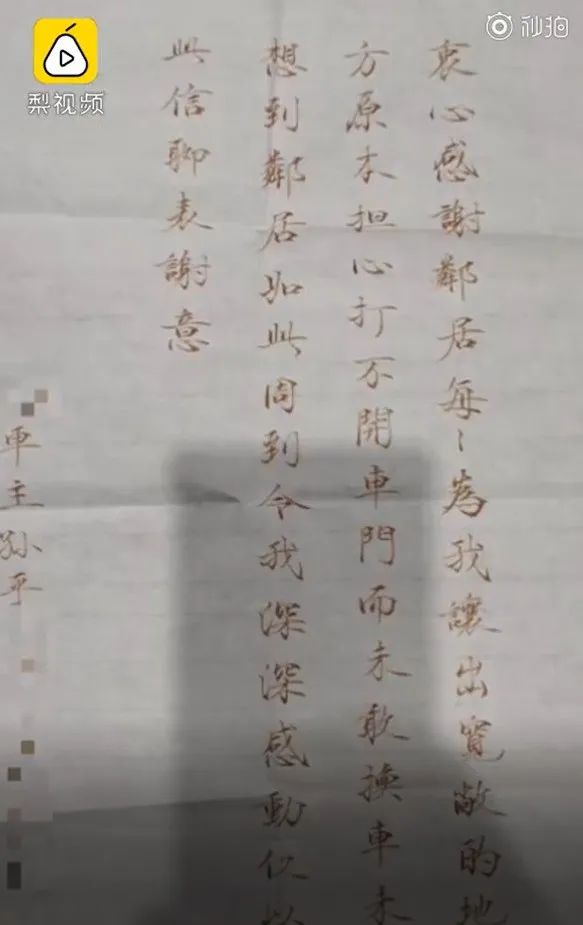 梨视频
秒拍
衷心感謝鄰居每〻為我讓出寬敞的地
方原本担心打不開車門而未敢換車未
想到鄰居如此周到令我深深感動仅以
此信聊表謝意
車主孙平